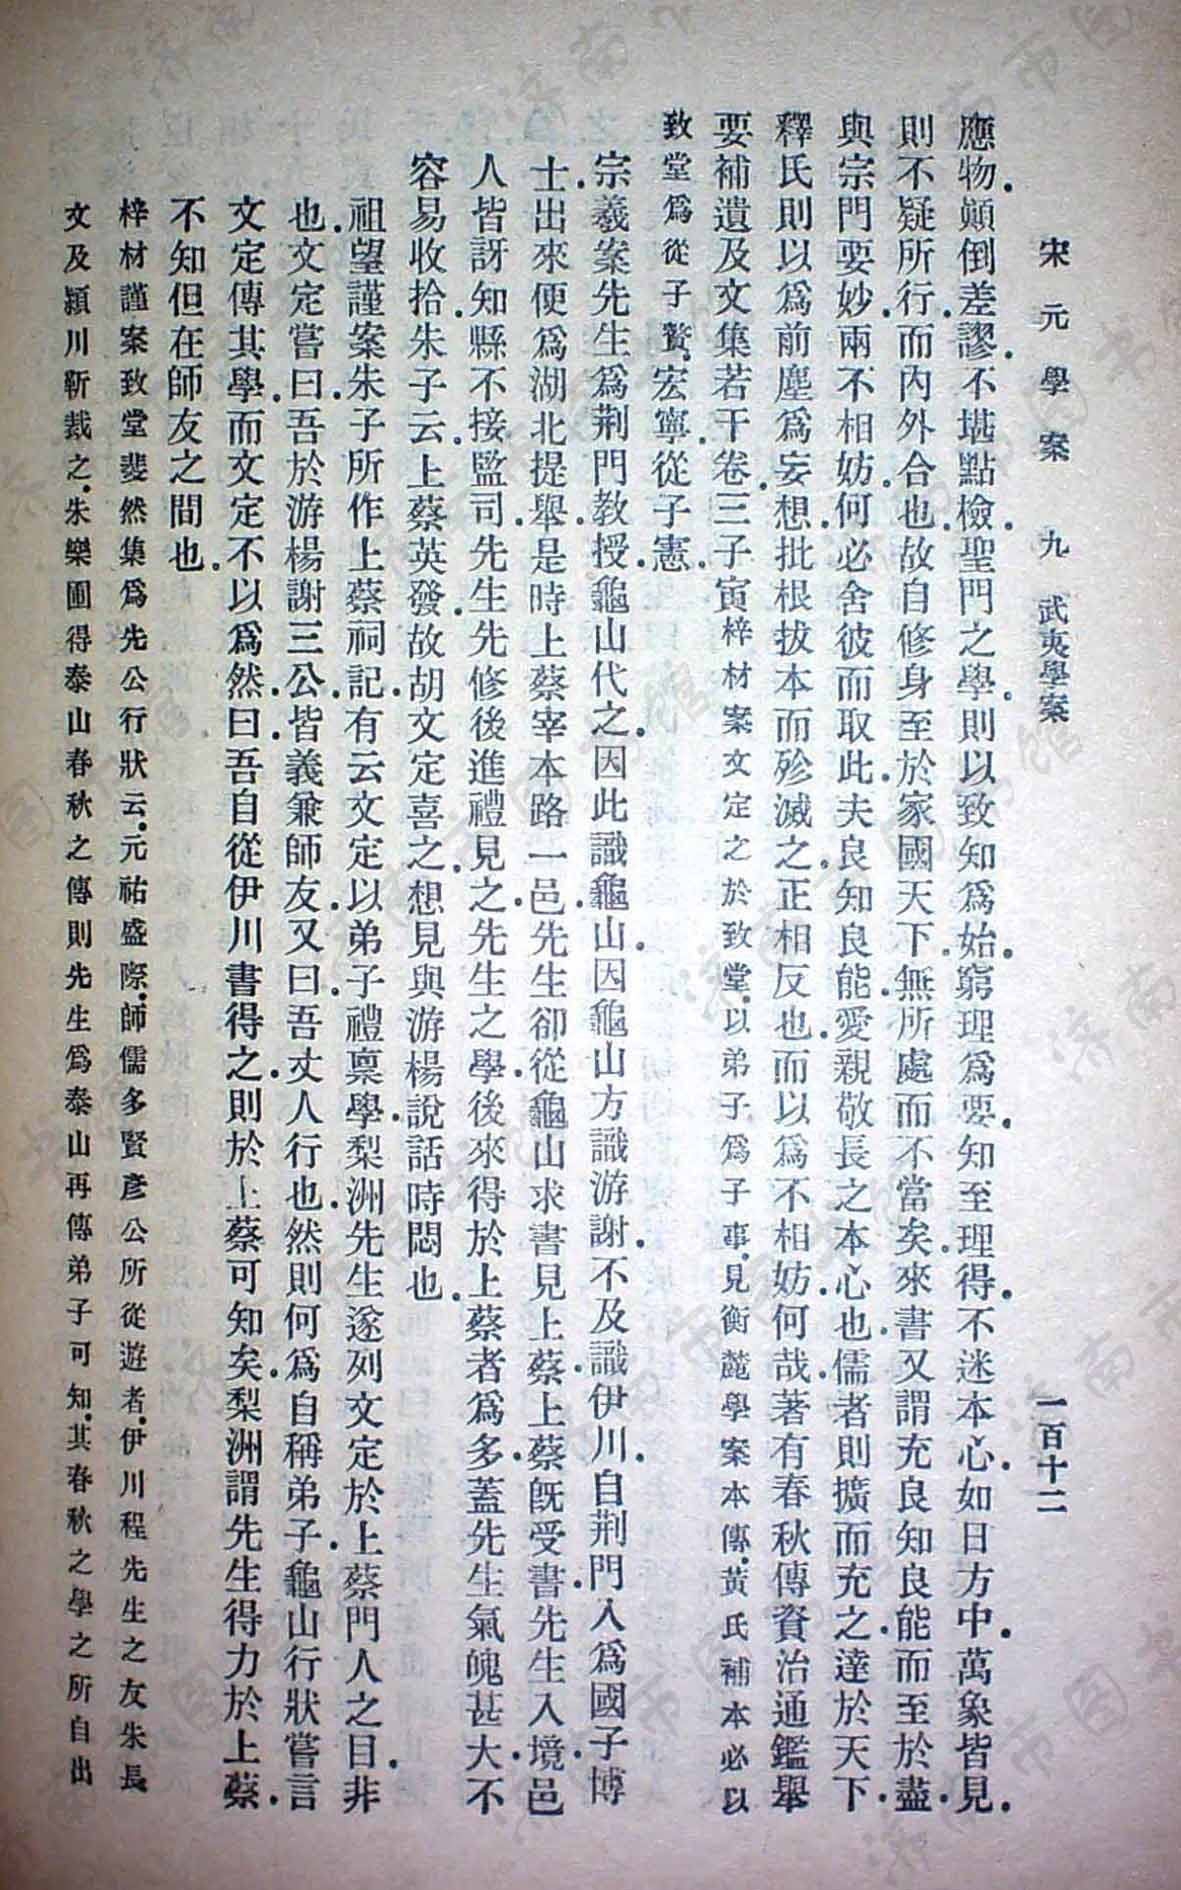 宋元學案 九 武夷學案 一百十二
應物.顛倒差謬.不堪點檢.聖門之學.則以致知爲始.窮理爲要.知至理得.不迷本心.如日方中.萬象皆見.
則不疑所行.而內外合也.故自修身至於家國天下.無所處而不當矣.來書又謂充良知良能而至於盡.
與宗門要妙.兩不相妨.何必舍彼而取此.夫良知良能.愛親敬長之本心也.儒者則擴而充之.達於天下.
釋氏則以爲前塵.爲妄想.批根拔本而殄滅之.正相反也.而以爲不相妨何哉.著有春秋傳資治通鑑舉
要補遺及文集若干卷.三子寅梓材案文定之於致堂.以弟子爲子事.見衡麓學案本傳.黃氏補本必以
致堂爲從子贅.宏寧.從子憲.
宗羲案先生爲荆門教授.龜山代之.因此識龜山.因龜山方識游謝.不及識伊川.自荆門入爲國子博
士.出來便爲湖北提舉.是時上蔡宰本路一邑.先生卻從龜山求書見上蔡.上蔡旣受書.先生入境.邑
人皆訝知縣不接監司.先生先修後進禮見之.先生之學.後來得於上蔡者爲多.蓋先生氣魄甚大.不
容易收拾.朱子云.上蔡英發.故胡文定喜之.想見與游楊說話時悶也.
祖望謹案.朱子所作上蔡祠記.有云文定以弟子禮稟學.梨洲先生遂列文定於上蔡門人之目.非
也.文定嘗曰.吾於游楊謝三公.皆義兼師友.又曰.吾丈人行也.然則何爲自稱弟子.龜山行狀嘗言
文定傳其學.而文定不以爲然.曰.吾自從伊川書得之.則於上蔡可知矣.梨洲謂先生得力於上蔡.
不知但在師友之間也.
梓材謹案致堂斐然集爲先公行狀云.元祐盛際.師儒多賢彥.公所從遊者.伊川程先生之友朱長
文及潁川靳裁之.朱樂圃得泰山春秋之傳.則先生爲泰山再傳弟子可知.其春秋之學之所自出